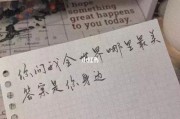 happens to you today.
你问我全世界哪里最美
答案是你身边
小红书